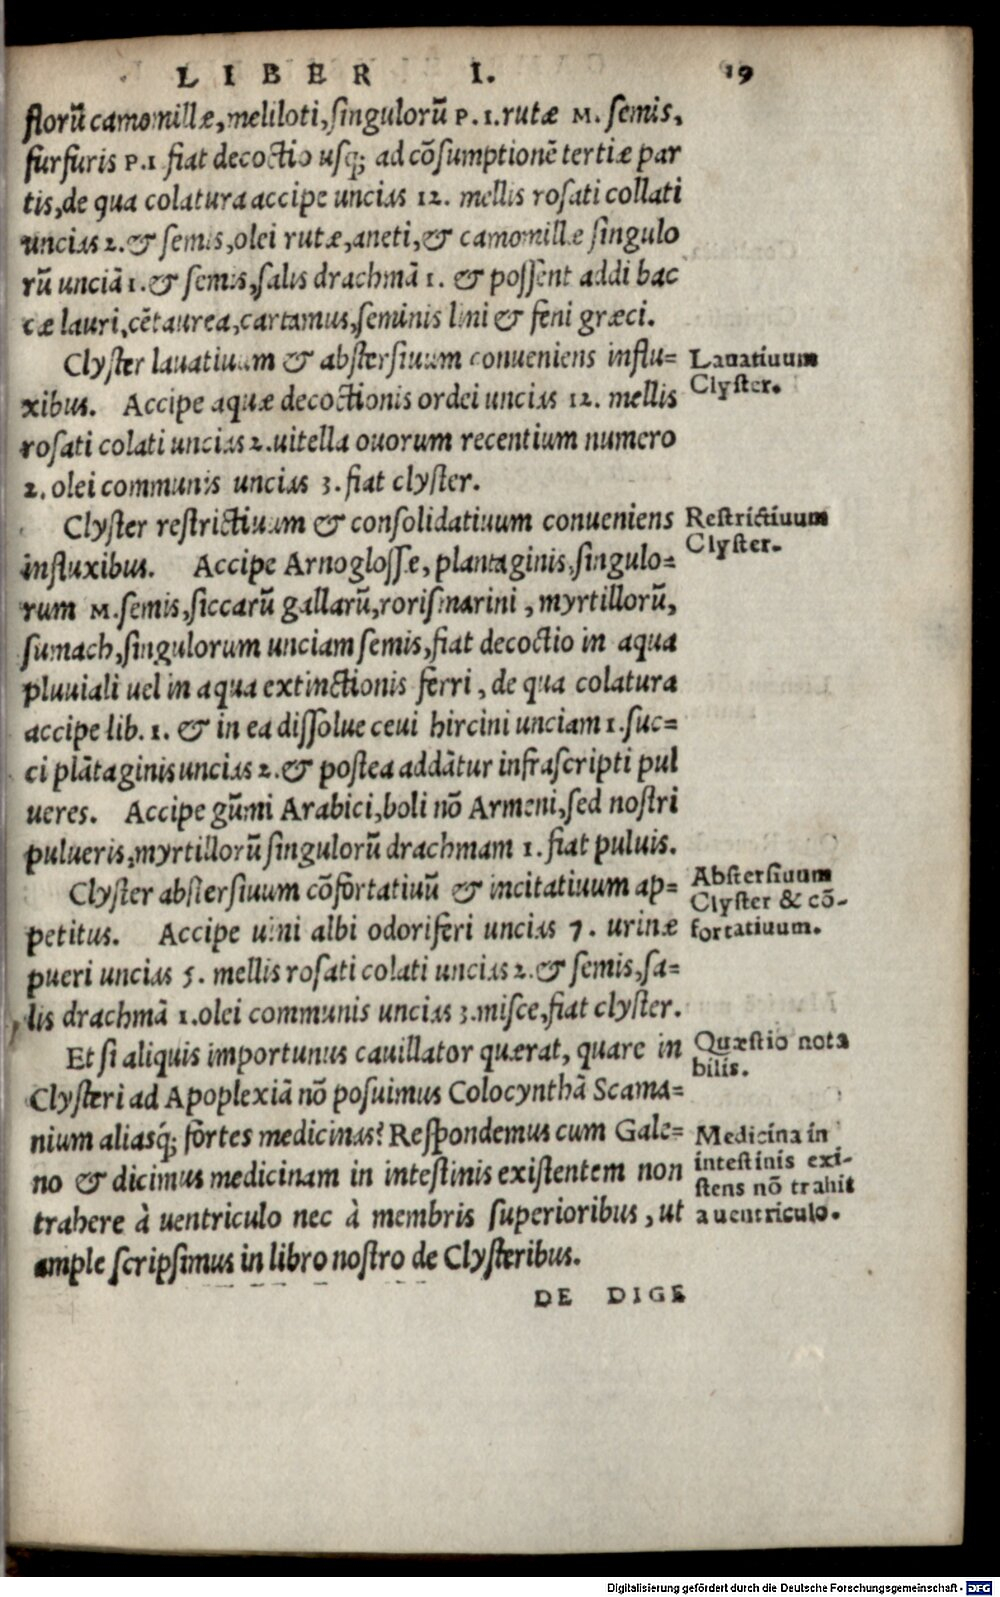 LIBER I. 19
florū camomillæ, meliloti, singulorū P. 1. rutæ M. semis,
furfuris P. 1 fiat decoctio usq; ad cōsumptionē tertiæ par
tis, de qua colatura accipe uncias 12. mellis rosati collati
uncias 2. & semis, olei rutæ, aneti, & camomillæ singulo
rū unciā 1. & semis, salis drachmā 1. & possent addi bac
cæ lauri, cētaurea, cartamus, seminis lini & feni græci.
Clyster lauatiuum & abstersiuum conueniens influ=
xibus. Accipe aquæ decoctionis ordei uncias 12. mellis
rosati colati uncias 2. uitella ouorum recentium numero
2. olei communis uncias 3. fiat clyster.
Lauatiuum
Clyster.
Clyster restrictiuum & consolidatiuum conueniens
influxibus. Accipe Arnoglossæ, plantaginis, singulo=
rum M. semis, siccarū gallarū, rorismarini, myrtillorū,
sumach, singulorum unciam semis, fiat decoctio in aqua
pluuiali uel in aqua extinctionis ferri, de qua colatura
accipe lib. 1. & in ea dissolue ceui hircini unciam 1. suc=
ci plātaginis uncias 2. & postea addātur infrascripti pul
ueres. Accipe gūmi Arabici, boli nō Armeni, sed nostri
pulueris, myrtillorū singulorū drachmam 1. fiat puluis.
Restrictiuum
Clyster.
Clyster abstersiuum cōfortatiuū & incitatiuum ap=
petitus. Accipe uini albi odoriferi uncias 7. urinæ
pueri uncias 5. mellis rosati colati uncias 2. & semis, sa=
lis drachmā 1. olei communis uncias 3. misce, fiat clyster.
Abstersiuum
Clyster & cō-
fortatiuum.
Et si aliquis importunus cauillator quærat, quare in
Clysteri ad Apoplexiā nō posuimus Colocynthā Scama=
nium aliasq́; fortes medicinas? Respondemus cum Gale=
no & dicimus medicinam in intestinis existentem non
trahere à uentriculo nec à membris superioribus, ut
ample scripsimus in libro nostro de Clysteribus.
Quæstio nota
bilis.
Medicina in
intestinis exi-
stens nō trahit
a uentriculo.
DE DIGE
Digitalisierung gefördert durch die Deutsche Forschungsgemeinschaft - DFG